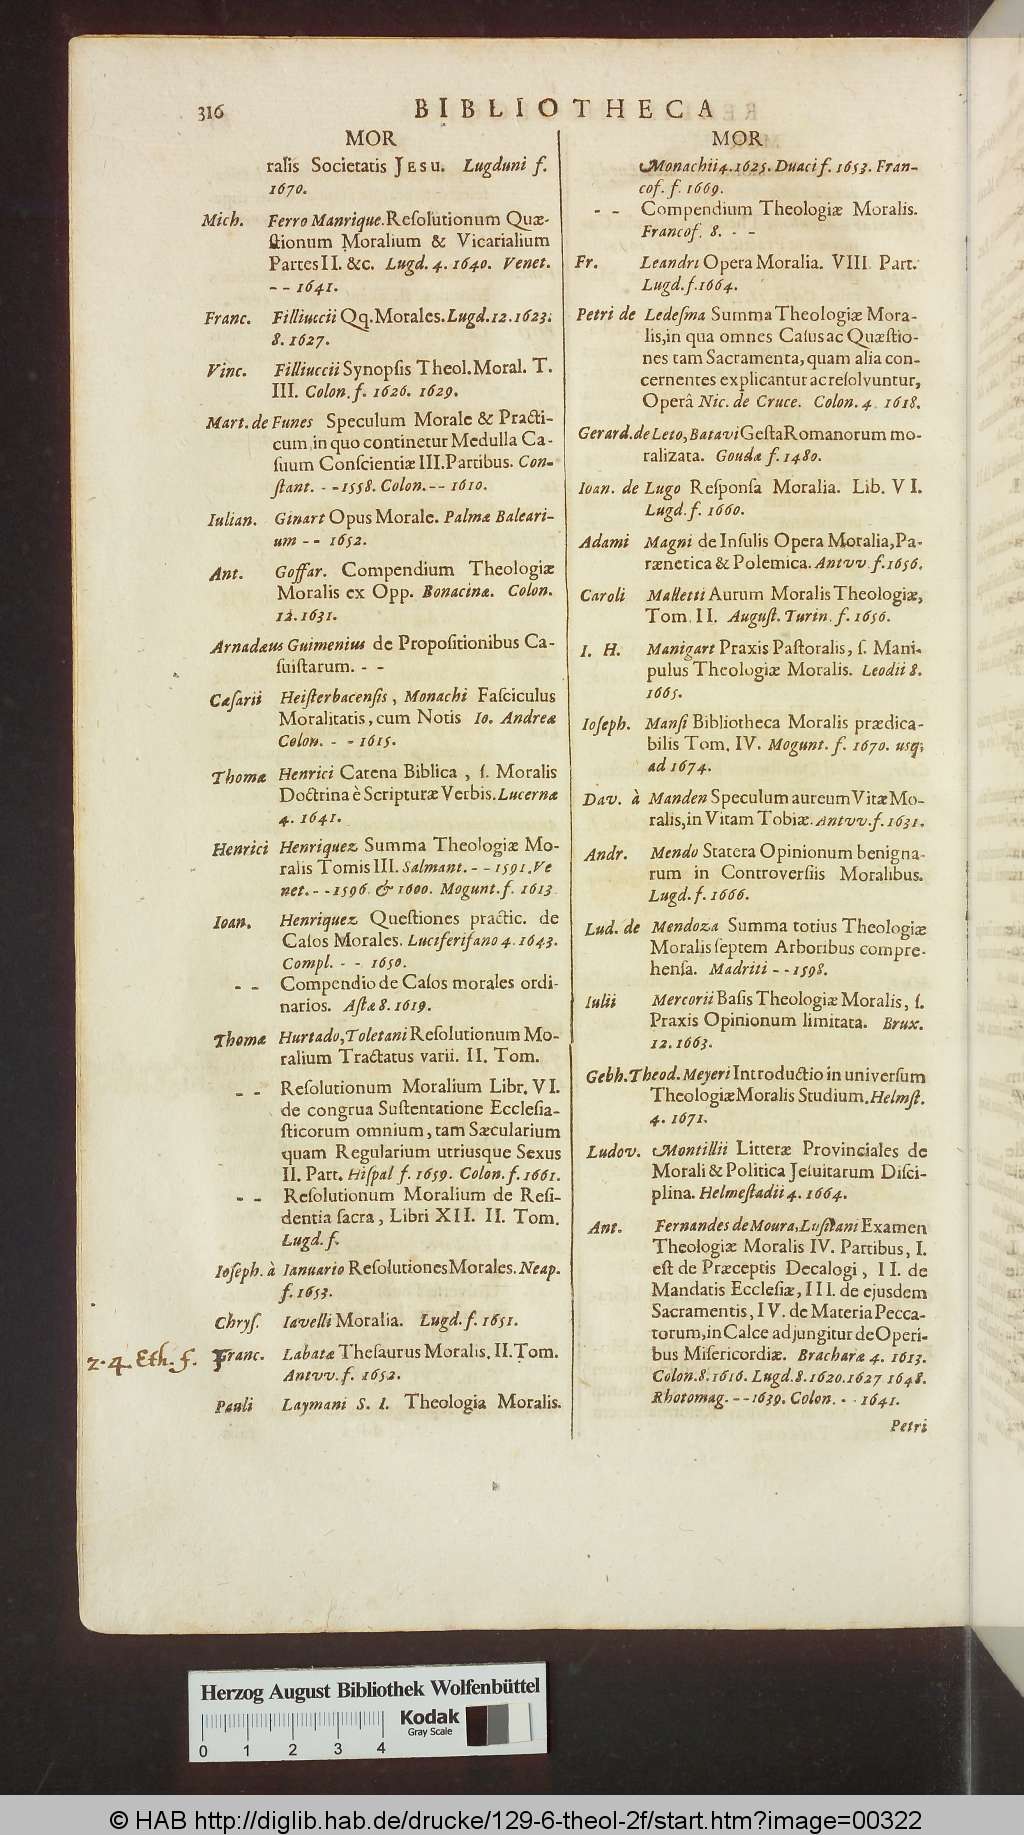 316
BIBLIOTHECA
MOR
ralis Societatis JESU. Lugduni f.
1670.
Mich. Ferro Manrique. Reſolutionum Quæ-
ſtionum Moralium & Vicarialium
Partes II. &c. Lugd. 4. 1640. Venet.
-- 1641.
Franc. Filliuccii Qq. Morales. Lugd. 12. 1623.
8. 1627.
Vinc. Filliuccii Synopſis Theol. Moral. T.
III. Colon. f. 1626. 1629.
Mart. de Funes Speculum Morale & Practi-
cum, in quo continetur Medulla Ca-
ſuum Conſcientiæ III. Partibus. Con-
ſtant. - - 1558. Colon. -- 1610.
Iulian. Ginart Opus Morale. Palmæ Baleari-
um -- 1652.
Ant. Goffar. Compendium Theologiæ
Moralis ex Opp. Bonacinæ. Colon.
12. 1631.
Arnadæus Guimenius de Propoſitionibus Ca-
ſuiſtarum. - -
Cæſarii Heiſterbacenſis, Monachi Faſciculus
Moralitatis, cum Notis Io. Andreæ
Colon. - - 1615.
Thomæ Henrici Catena Biblica, ſ. Moralis
Doctrina è Scripturæ Verbis. Lucernæ
4. 1641.
Henrici Henriquez Summa Theologiæ Mo-
ralis Tomis III. Salmant. - - 1591. Ve
net. - - 1596. & 1600. Mogunt. f. 1613
Ioan. Henriquez Queſtiones practic. de
Caſos Morales. Luciferiſano 4. 1643.
Compl. - -. 1650.
- - Compendio de Caſos morales ordi-
narios. Aſtæ 8. 1619.
Thomæ Hurtado, Toletani Reſolutionum Mo-
ralium Tractatus varii. II. Tom.
- - Reſolutionum Moralium Libr. VI.
de congrua Suſtentatione Eccleſia-
ſticorum omnium, tam Sæcularium
quam Regularium utriusque Sexus
II. Part. Hiſpal f. 1659. Colon. f. 1661.
- - Reſolutionum Moralium de Reſi-
dentia ſacra, Libri XII. II. Tom.
Lugd. f.
Ioſeph. à Ianuario Reſolutiones Morales. Neap.
f. 1653.
Chryſ. Iavelli Moralia. Lugd. f. 1651.
2. 4. Eth. f. Franc. Labatæ Theſaurus Moralis. II. Tom.
Antvv. f. 1652.
Pauli Laymani S. I. Theologia Moralis.
MOR
Monachii 4. 1625. Duaci f. 1653. Fran-
cof. f. 1669.
- - Compendium Theologiæ Moralis.
Francof. 8. - -
Fr. Leandri Opera Moralia. VIII Part.
Lugd. f. 1664.
Petri de Ledeſma Summa Theologiæ Mora-
lis, in qua omnes Caſus ac Quæſtio-
nes tam Sacramenta, quam alia con-
cernentes explicantur ac reſolvuntur,
Operâ Nic. de Cruce. Colon. 4. 1618.
Gerard. de Leto, Batavi Geſta Romanorum mo-
ralizata. Goudæ f. 1480.
Ioan. de Lugo Reſponſa Moralia. Lib. VI.
Lugd. f. 1660.
Adami Magni de Inſulis Opera Moralia, Pa-
rænetica & Polemica. Antvv f. 1656.
Caroli Malletti Aurum Moralis Theologiæ,
Tom. II. Auguſt. Turin. f. 1656.
I. H. Manigart Praxis Paſtoralis, ſ. Mani-
pulus Theologiæ Moralis. Leodii 8.
1665.
Ioſeph. Manſi Bibliotheca Moralis prædica-
bilis Tom. IV. Mogunt. f. 1670. usq;
ad 1674.
Dav. à Manden Speculum aureum Vitæ Mo-
ralis, in Vitam Tobiæ. Antvv. f. 1631.
Andr. Mendo Statera Opinionum benigna-
rum in Controverſiis Moralibus.
Lugd. f. 1666.
Lud. de Mendoza Summa totius Theologiæ
Moralis ſeptem Arboribus compre-
henſa. Madriti -- 1598.
Iulii Mercorii Baſis Theologiæ Moralis, ſ.
Praxis Opinionum limitata. Brux.
12. 1663.
Gebh. Theod. Meyeri Introductio in univerſum
Theologiæ Moralis Studium. Helmſt.
4. 1671.
Ludov. Montillii Litteræ Provinciales de
Morali & Politica Jeſuitarum Diſci-
plina. Helmeſtadii 4. 1664.
Ant. Fernandes de Moura, Luſitani Examen
Theologiæ Moralis IV. Partibus, I.
eſt de Præceptis Decalogi, II. de
Mandatis Eccleſiæ, III. de ejusdem
Sacramentis, IV. de Materia Pecca-
torum, in Calce adjungitur de Operi-
bus Miſericordiæ. Bracharæ 4. 1613.
Colon. 8. 1616. Lugd. 8. 1620. 1627 1648.
Rhotomag. -- 1639. Colon. - - 1641.
Petri
Herzog August Bibliothek Wolfenbüttel
Kodak
Gray Scale
0 1 2 3 4
© HAB http://diglib.hab.de/drucke/129-6-theol-2f/start.htm?image=00322